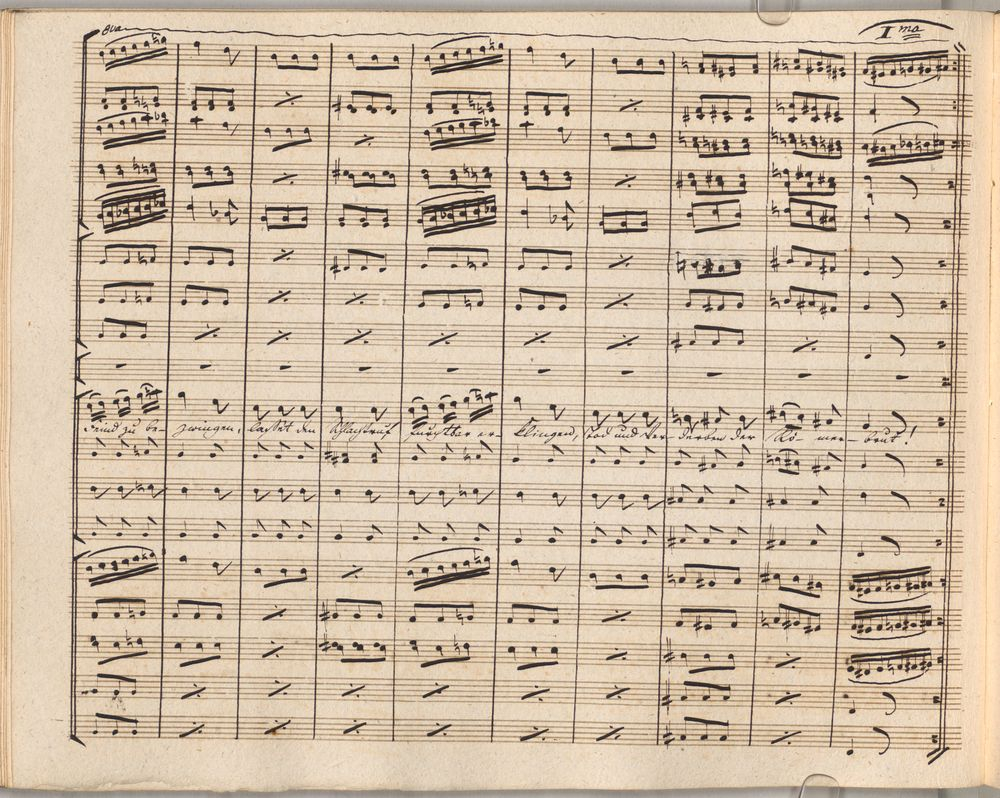 8va
I ma
Feind zu be- zwingen, lasset den Schlachtruf furchtbar er- klingen, Tod und Ver- derben der Rö- mer- brut!